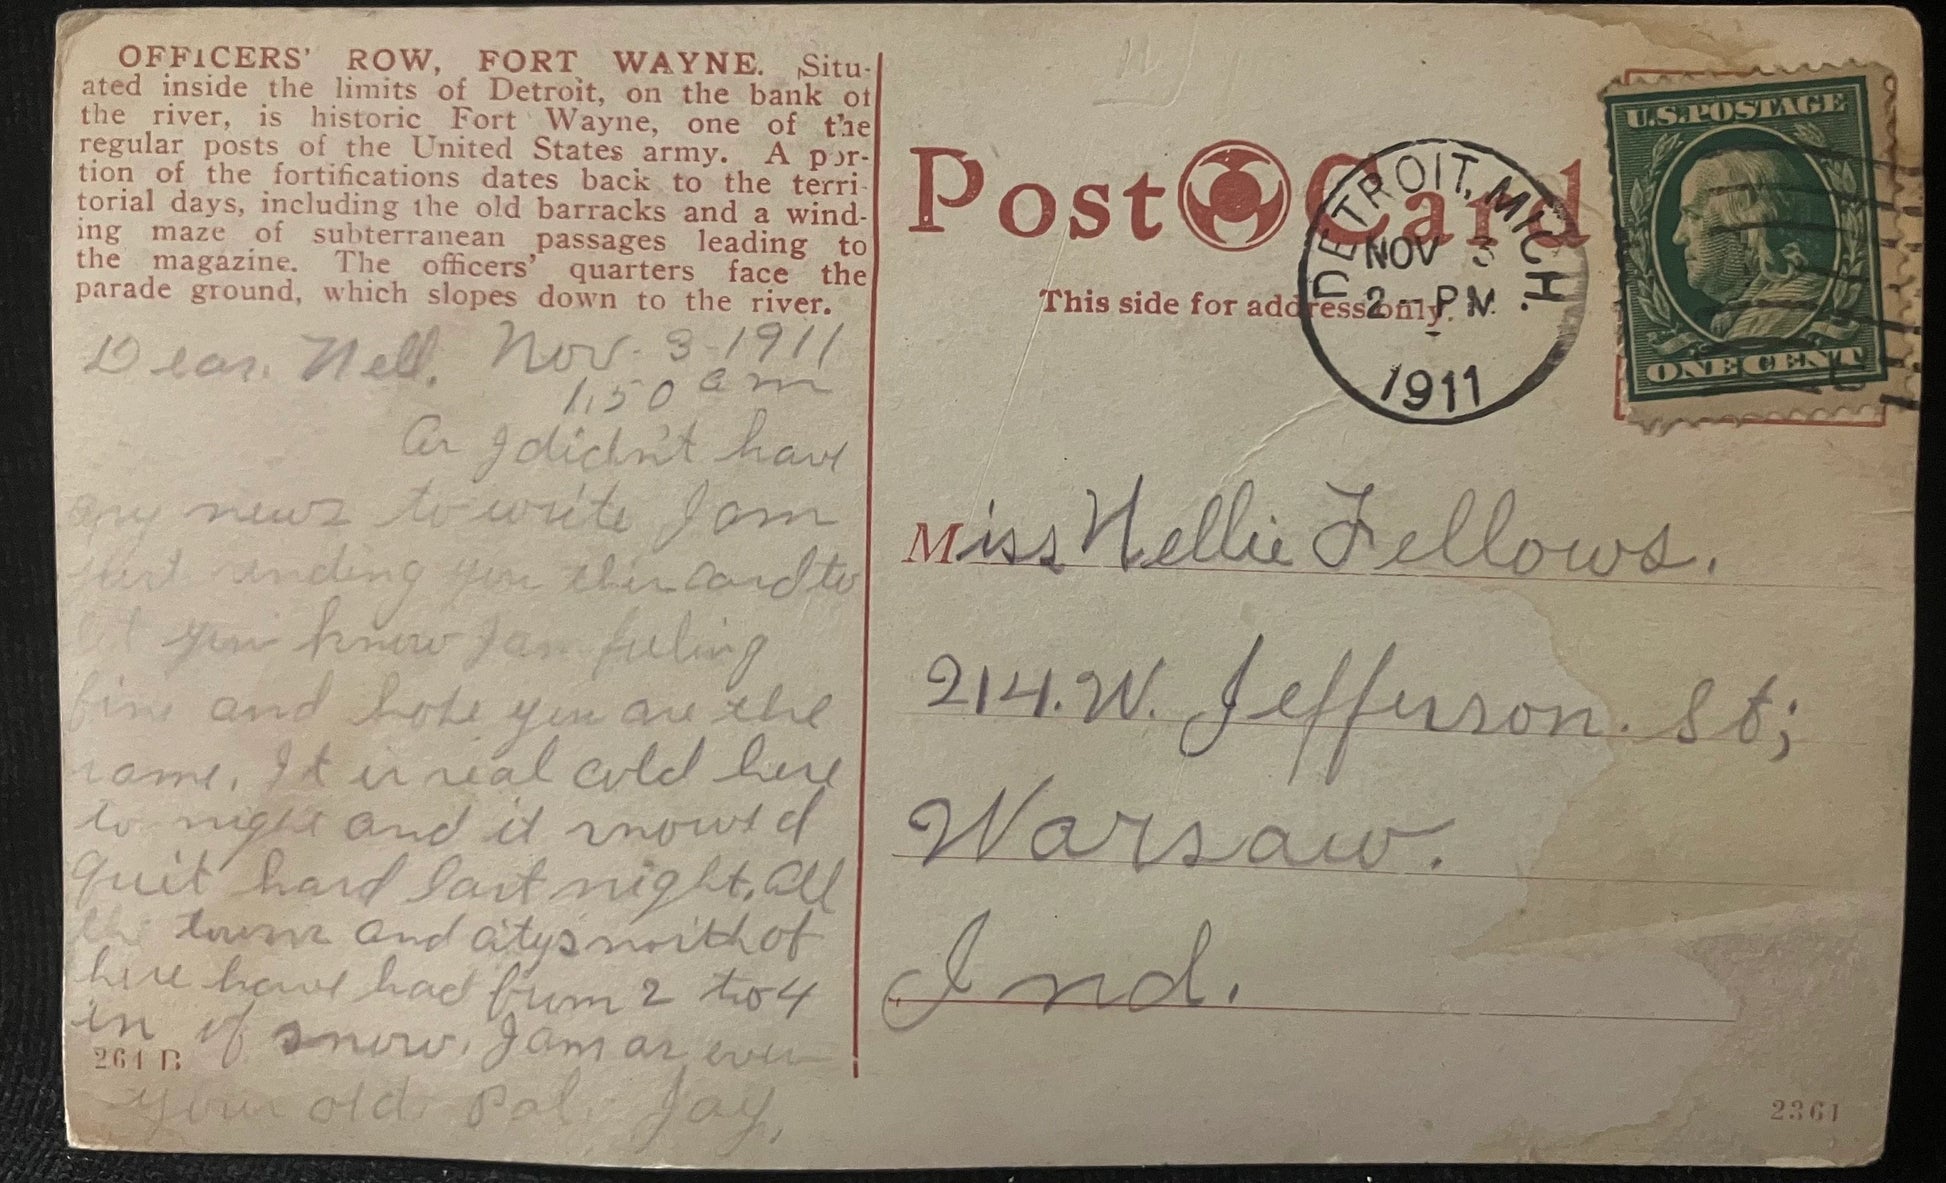 OFFICERS' ROW, FORT WAYNE. Situ-
ated inside the limits of Detroit, on the bank of
the river, is historic Fort Wayne, one of the
regular posts of the United States army. A por-
tion of the fortifications dates back to the terri-
torial days, including the old barracks and a wind-
ing maze of subterranean passages leading to
the magazine. The officers' quarters face the
parade ground, which slopes down to the river.
Dear. Nell. Nov. 3-1911
1,50 am
As I didn't have
any news to write I am
just sending you this card to
let you know I am feeling
fine and hope you are the
same. It is real cold here
to night and it snowed
quit hard last night. All
the towns and citys north of
here have had from 2 to 4
in of snow. I am as ever
your old. Pal. Jay,
264 B
Post Card
This side for address only.
DETROIT, MICH.
NOV 3
2 - PM
1911
U.S. POSTAGE
ONE CENT
Miss Nellie Fellows.
214. W. Jefferson. St;
Warsaw.
Ind.
2361